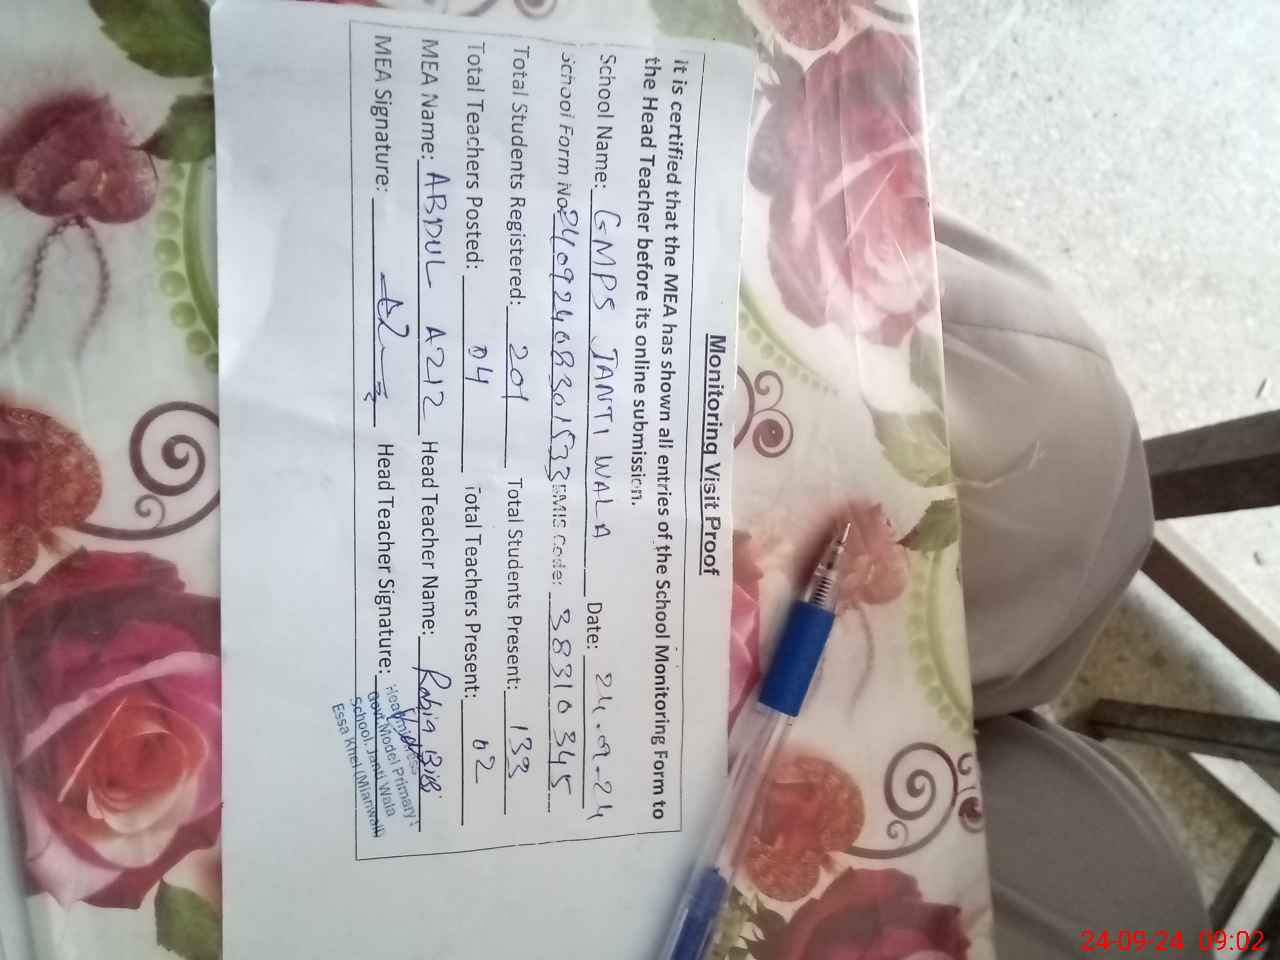 Monitoring Visit Proof
It is certified that the MEA has shown all entries of the School Monitoring Form to
the Head Teacher before its online submission.
School Name: GMPS JANTI WALA Date: 24.09-24
School Form No: 24092408301533 EMIS Code: 38310345
Total Students Registered: 201 Total Students Present: 133
Total Teachers Posted: 04 Total Teachers Present: 02
MEA Name: ABDUL AZIZ Head Teacher Name: Rabia Bibi
MEA Signature: Head Teacher Signature:
Headmistress
Govt Model Primary
School, Janti Wala
Essa Khel (Mianwali)
24-09-24 09:02